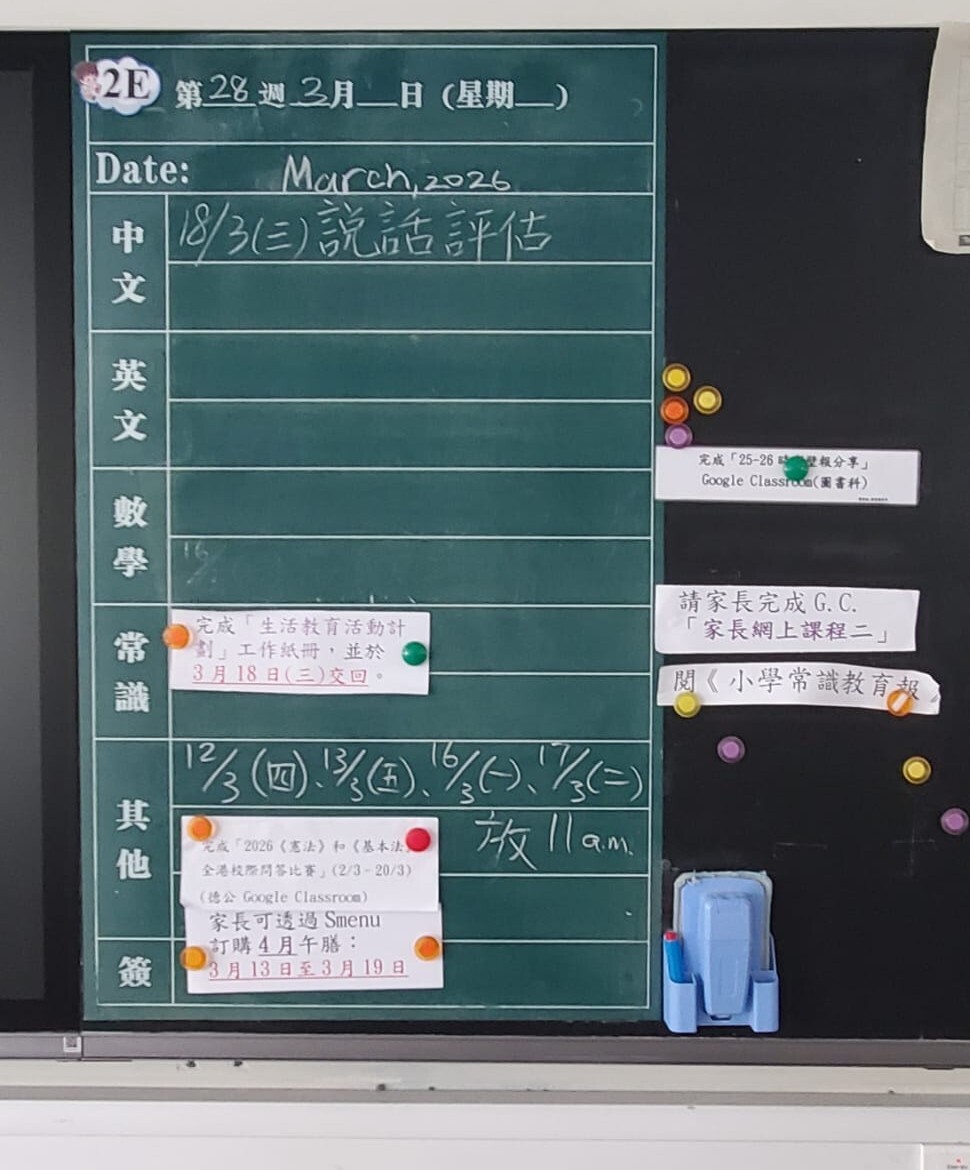 2E
第28週3月__日(星期__)
Date: March,2026
中文
18/3(三)説話評估
英文
數學
16/
常識
完成「生活教育活動計
劃」工作紙冊,並於
3月18日(三)交回。
其他
12/3(四)、13/3(五)、16/3(一)、17/3(二)
放11a.m.
完成「2026《憲法》和《基本法
全港校際問答比賽」(2/3-20/3)
(德公 Google Classroom)
簽
家長可透過 Smenu
訂購4月午膳:
3月13日至3月19日
完成「25-26 時 壁報分享」
Google Classroom(圖書科)
請家長完成 G.C.
「家長網上課程二」
閱《小學常識教育報》